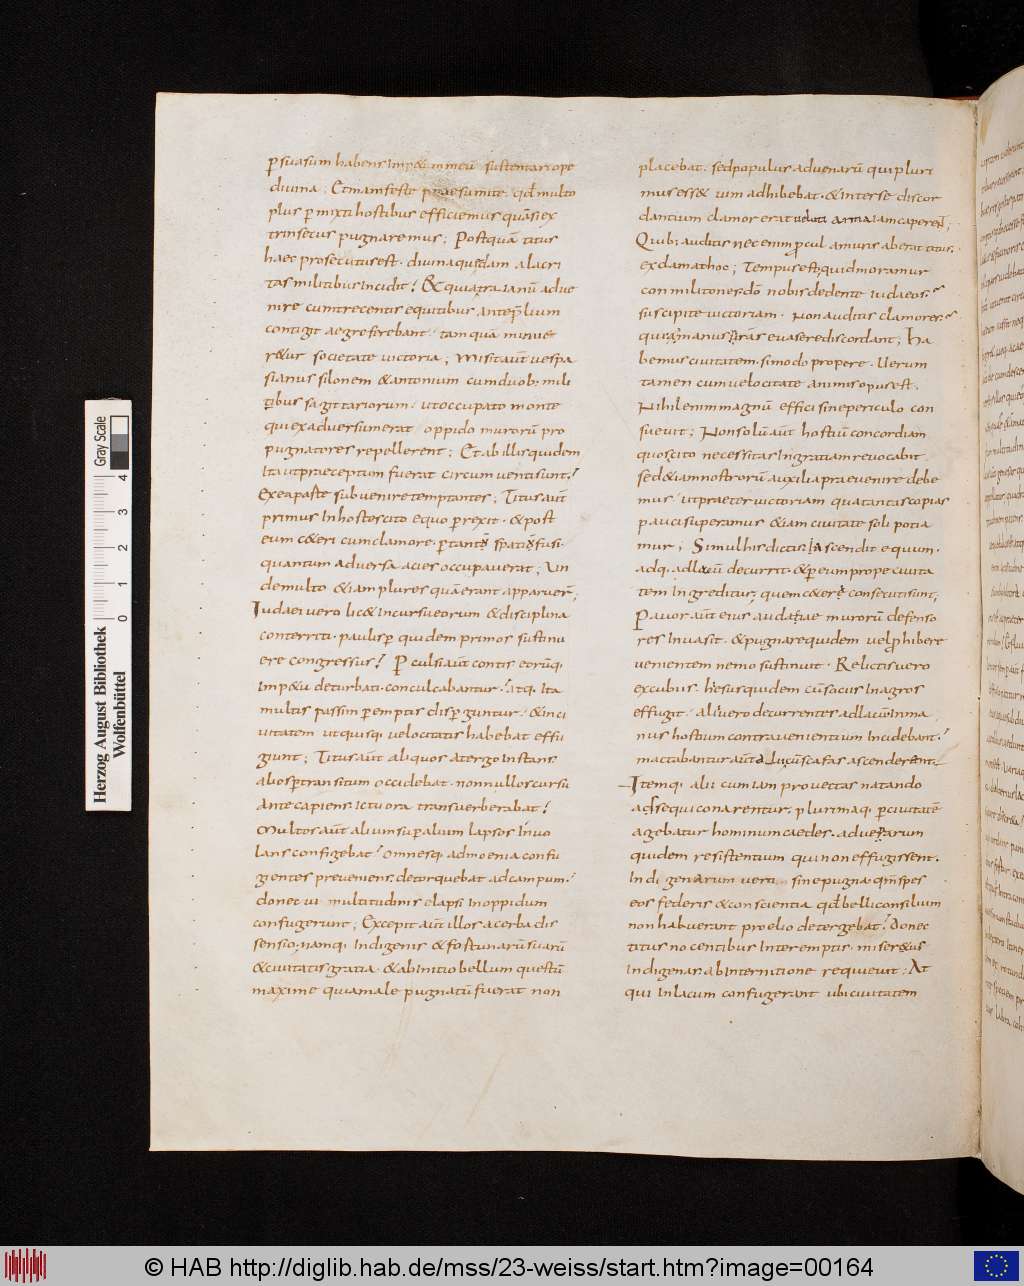 psuasum habens Imp&um meū sustentari ope
diuina; Et manifeste praesumite. qd multo
plus pmixti hostibus efficiemus quā si ex
trinsecus pugnaremus; Postquā titus
haec prosecutus est. diuina quędam alacri
tas militibus incidit! & quia traianū adue
nire cum trecentis equitibus ante plium
contigit aegre ferebant. tam quā minue
r&ur societate uictoria; Misit aūt uespa
sianus silonem & antonium cum duob; mili
tibus sagittariorum. ut occupato monte
qui ex aduersum erat oppido murorū pro
pugnatores repellerent; Et ab illis quidem
Ita ut praeceptum fuerat circumuenti sunt!
Ex ea parte subuenire temptantes; Titus aūt
primus In hostes cito equo prexit. & post
eum c&eri cum clamore. p tantū spatiū fusi.
quantum aduersa acies occupauerat; Un
de multo & iam plures quā erant apparuer;
Iudaei uero lic& Incursu eorum & disciplina
conterriti. paulisp quidem primos sustinu
ere congressus! Pculsi aūt contis eorūq;
Imp&u deturbati. conculcabantur! Atq; Ita
multis passim peremptis dispguntur. & in ci
uitatem ut quisq; uelocitatis habebat effu
giunt; Titus aūt aliquos a tergo Instans
alios ptransitum occidebat. nonnullos cursu
Antecapiens. Ictu ora transuerberabat!
Multos aūt alium sup alium lapsos Inuo
lans configebat! Omnesq; ad moenia confu
gientes preueniens. detorquebat ad campum!
donec ui multitudinis elapsi In oppidum
confugerunt; Excepit aūt illos acerba dis
sensio; namq; Indigenis & fortunarū suarū
& ciuitatis gratia. & ab Initio bellum questū
maxime quia male pugnatū fuerat non
placebat. sed populus aduenarū qui pluri
mus ess& uim adhibebat. & Inter se discor
dantium clamor erat ueluti arma iam caperent;
Quib; auditis nec enim pcul a muris aberat titus.
exclamat hoc; Tempus est; quid moramur
conmilitones. dō nobis dedente iudaeos.
suscipite uictoriam. Non auditis clamores.
qui manus nr̄as euasere discordant; Ha
bemus ciuitatem. si modo propere. Uerum
tamen cum uelocitate animis opus est.
Nihil enim magnū effici sine periculo con
sueuit; Non solū aūt hostiū concordiam
quos cito necessitas In gratiam reuocabit
sed & iam nostrorū auxilia praeuenire debe
mus. ut praeter uictoriam qua tantas copias
pauci superamus & iam ciuitate soli potia
mur; Simul his dictis ascendit equum.
adq; ad lacū decurrit. & p eum prope ciuita
tem Ingreditur; quem c&eri consecuti sunt;
Pauor aūt eius audatiae murorū defenso
res Inuasit. & pugnare quidem uel phibere
uenientem nemo sustinuit. Relictis uero
excubiis. hesus quidem cū sociis In agros
effugit. alii uero decurrentes ad lacū Inma
nus hostium contra uenientium Incidebant!
mactabantur aūt alii cū scafas ascenderent.
Itemq; alii cum iam prouectas natando
adsequi conarentur. plurimaq; p ciuitatē
agebatur hominum caedes. aduenarum
quidem resistentium qui non effugissent.
Indigenarum uero sine pugna. qm̄ spes
eos federis & conscientia qd belli consilium
non habuerant proelio detergebat! donec
titus nocentibus Interemptis. miser&us
Indigenas ab Internitione requieuit; At
qui In lacum confugerant ubi ciuitatem
Herzog August Bibliothek
Wolfenbüttel
0 1 2 3 4 Gray Scale
© HAB http://diglib.hab.de/mss/23-weiss/start.htm?image=00164